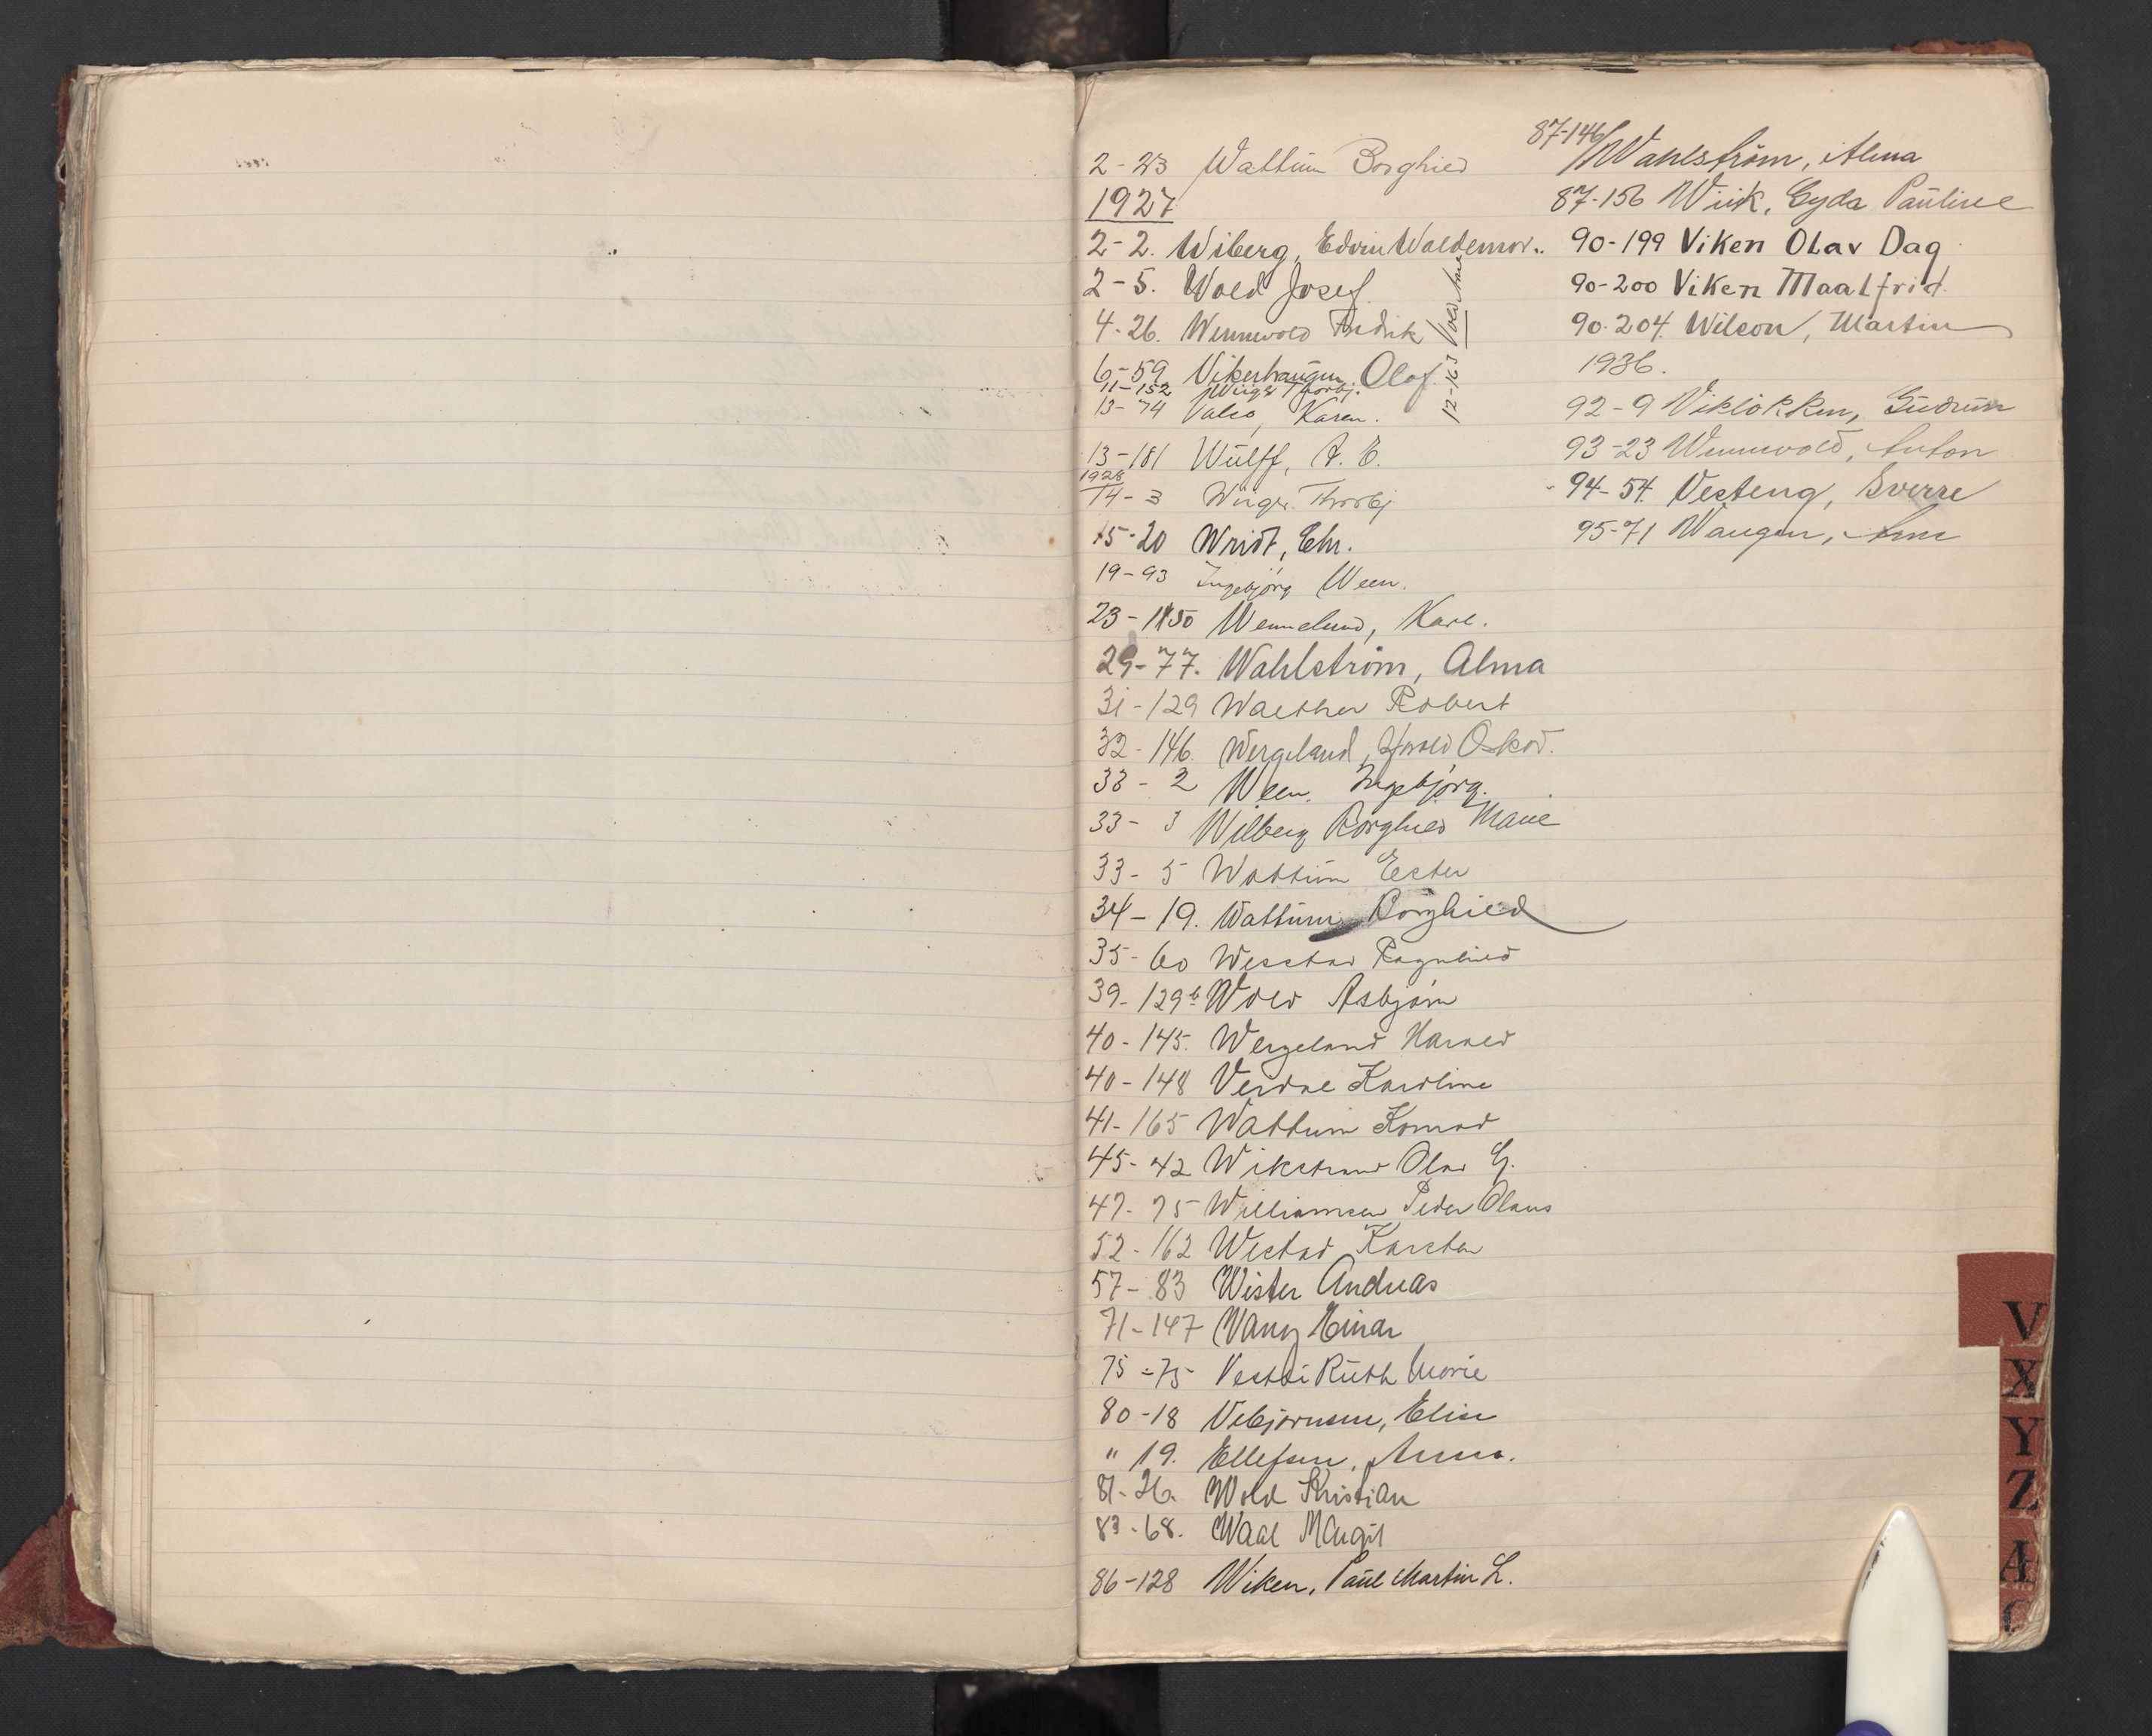 2-23 Wattum Borghild
1927
2-2. Wiberg, Edvin Waldemar.
2-5. Wold Josef
4-26. Wennevold Fredrik
6-59 Vikerhaugen Olaf.
11-152 Wüger Thorbj.
12-163 Vold Arne
13-74 Valso, Karen.
13-181 Wülff, A. E.
1928
14-3 Wüger Thorbj
15-20 Wridt, Chr.
19-93 Ingebjörg Ween.
23-150 Wennelund, Karl.
29-77. Wahlström, Alma
31-129 Walther Robert
32-146. Wergeland, Harald Oskar.
33-2 Ween, Ingebjörg.
33-3 Wilberg Borghild Marie
33-5 Wattum Ester
34-19. Wattum Borghild
35-60 Westad Ragnhild
39-129b Wold Asbjørn
40-145. Wergeland Harald
40-148 Verdal Karoline
41-165 Wattum Konrad
45-42 Wikstrand Olav G.
47-75 Williamsen Peder Olaus
52-162 Westad Karsten
57-83 Wister Andreas
71-147 Wang Einar
75-75 Vestli Ruth Marie
80-18 Vebjørnsen, Elise
" 19. Ellefsen, Anna.
81-26. Wold Kristian
83-68. Waal Margit
86-128 Wiken, Paul Martin L.
87-146 Wahlström, Alma
87-156 Wiik, Gyda Pauline
90-199 Viken Olav Dag
90-200 Viken Maalfrid
90-204. Wilson, Martin
1936.
92-9 Vikløkken, Gudrun
93-23 Wennevold, Anton
94-54. Vesteng, Sverre
95-71 Wangen, Arne
V
X
Y
Z
Æ